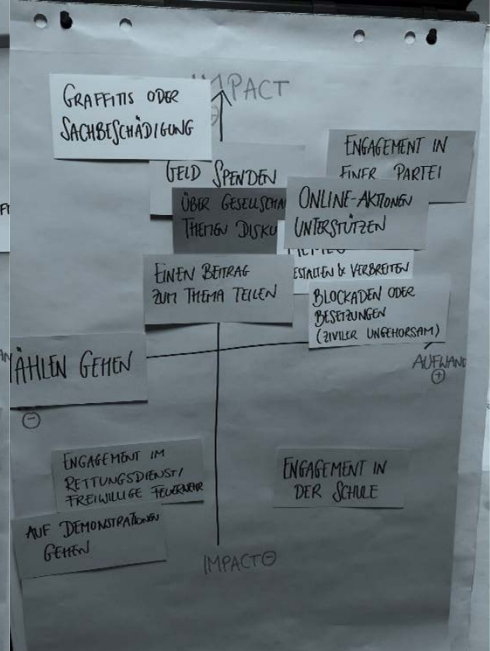 IMPACT
GRAFFITIS ODER
SACHBESCHÄDIGUNG
ENGAGEMENT IN
EINER PARTEI
GELD SPENDEN
ÜBER
THEMEN
ONLINE-AKTIONEN
UNTERSTÜTZEN
& VERBREITEN
EINEN BEITRAG
ZUM THEMA TEILEN
BLOCKADEN ODER
BESETZUNGEN
(ZIVILER UNGEHORSAM)
GEHEN
⊕
⊖
ENGAGEMENT IM
RETTUNGSDIENST/
FREIWILLIGE FEUERWEHR
ENGAGEMENT IN
DER SCHULE
AUF DEMONSTRATIONEN
GEHEN
IMPACT ⊖